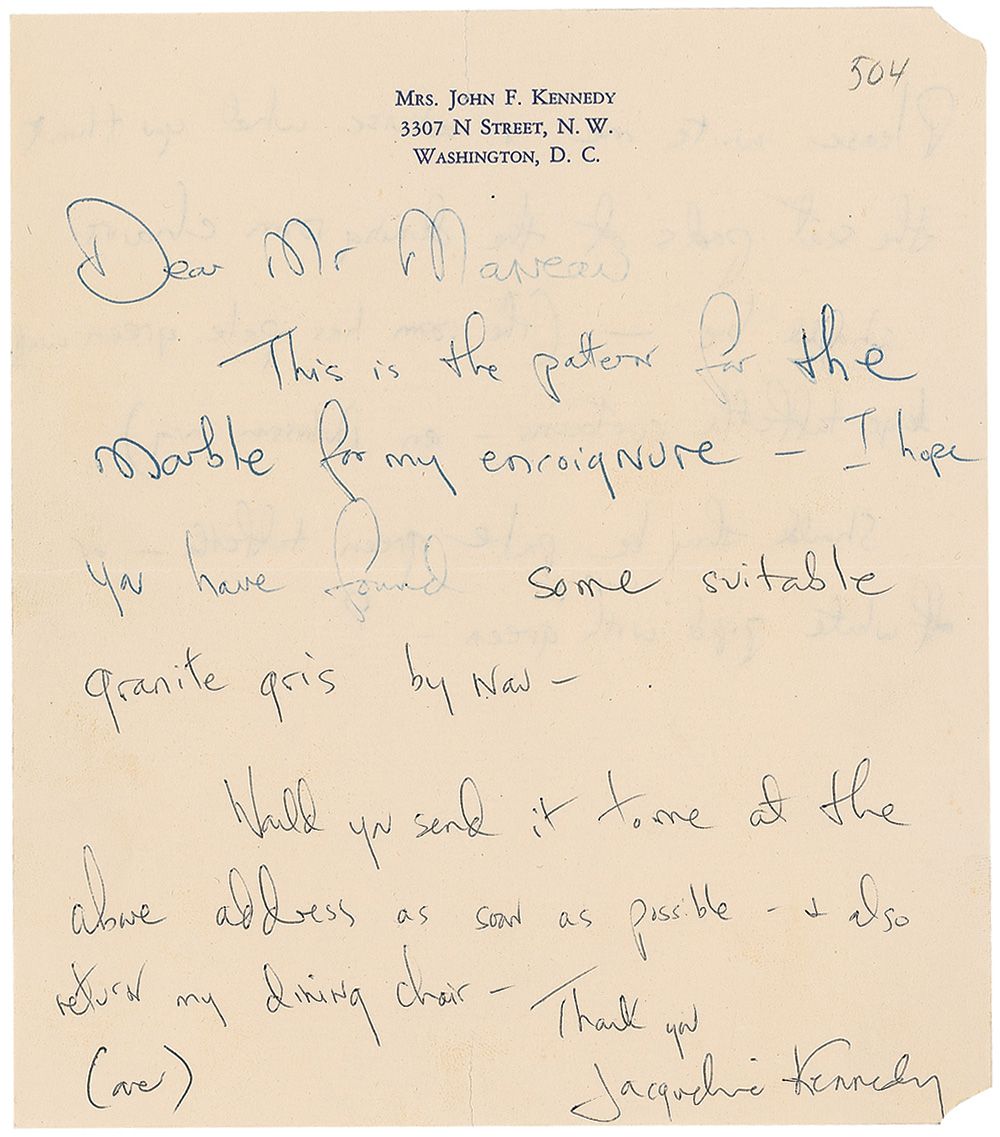 504
MRS. JOHN F. KENNEDY
3307 N STREET, N. W.
WASHINGTON, D. C.
Dear Mr
This is the pattern for the
marble for my encoignure – I hope
you have found some suitable
granite gris by now –
Would you send it to me at the
above address as soon as possible – + also
return my dining chair –
Thank you
(over)
Jacqueline Kennedy